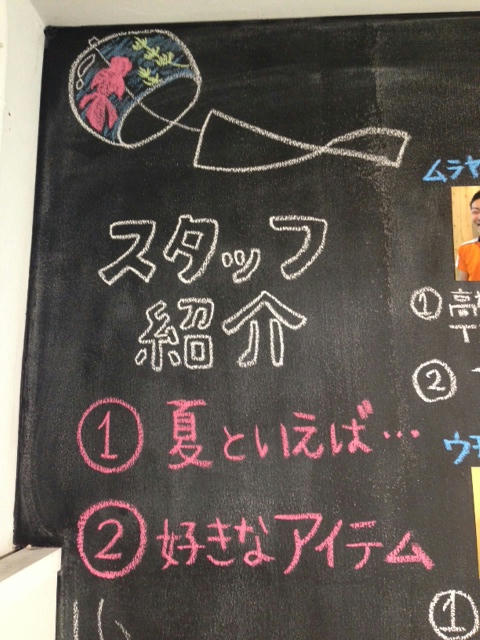 スタッフ
紹介
① 夏といえば…
② 好きなアイテム
ムラヤ
① 高
②
ウ
①